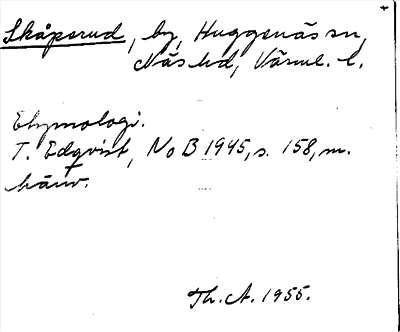 Skåpsrud, by, Huggenäs sn,
Näs hd, Värml. l.
Etymologi.
T. Edqvist, No B 1945, s. 158, m.
hänv.
Th. A. 1955.